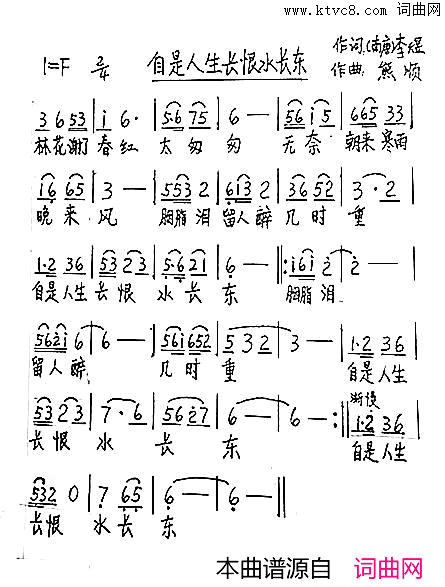 www.ktvc8.com 词曲网
1=F 2/4 自是人生长恨水长东 作词:(南唐)李煜
作曲:熊顺
3 6 53 | i 6· | 5·6 75 | 6 — | 56 i5 | 665 33 |
林花谢了春红 太匆匆 无奈 朝来寒雨
i6 65 | 3 — | 553 2 | 613 2 | 36 52 | 3·2 |
晚来风 胭脂泪 留人醉 几时重
1·2 36 | 53 23 | 5·6 21 | 6 — |: i6i 2 | 2 — |
自是人生长恨水长东 胭脂泪
562i 6 | 6 — | 56i 652 | 5 32 | 3 — | 1·2 36 |
留人醉 几时重 自是人生
渐慢
53 23 | 7·6 | 56 27 | 6 — | 6 — :| 1·2 36 |
长恨水长东 自是人生
532 0 | 7 65 | 6 — | 6 — ||
长恨 水长东
本曲谱源自 词曲网